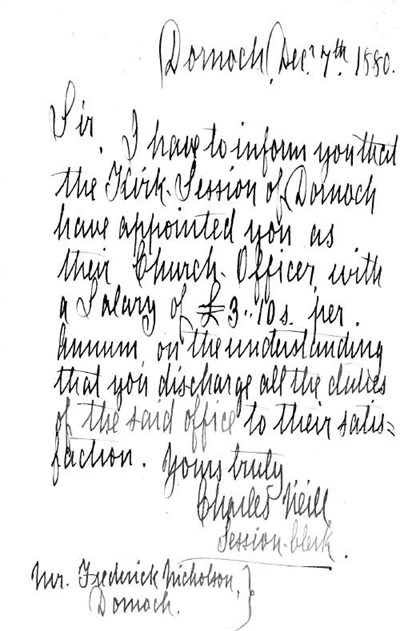 Dornoch, Decr. 7th. 1880.
Sir,
I have to inform you that
the Kirk-Session of Dornoch
have appointed you as
their Church-Officer, with
a Salary of £3..10s. per.
Annum, on the understanding
that you discharge all the duties
of the said office to their satis=
faction. Yours truly
Charles Neill
Session-Clerk.
Mr. Frederick Nicholson, }
Dornoch.